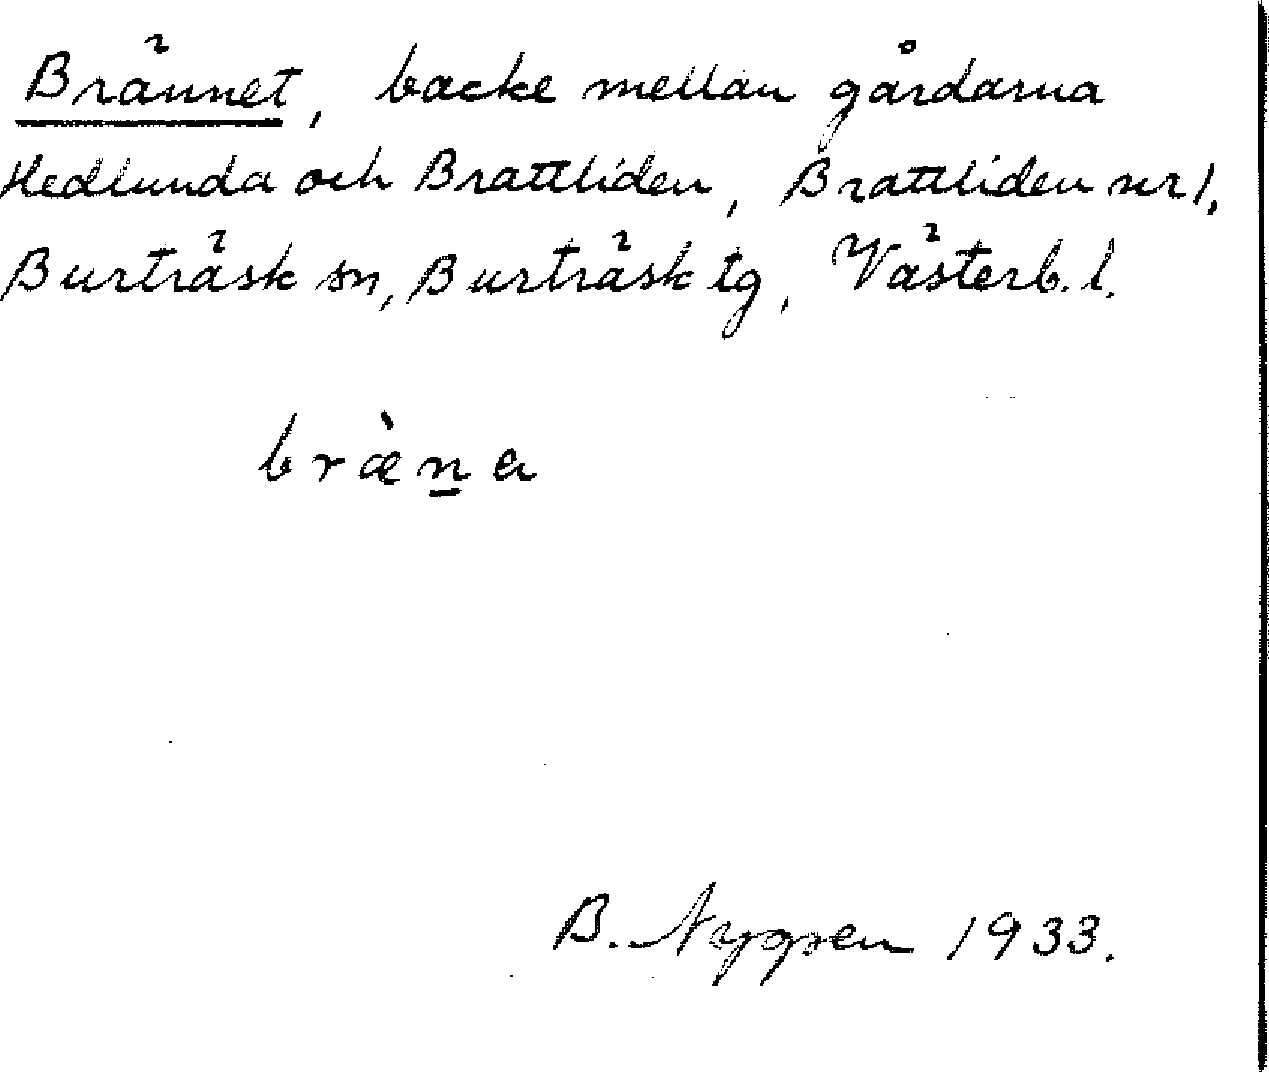 Brännet, backe mellan gårdarna
Hedlunda och Brattliden, Brattliden nr 1,
Burträsk sn, Burträsk tg, Västerb. l.
bræ̀n̲a
B. Nygren 1933.